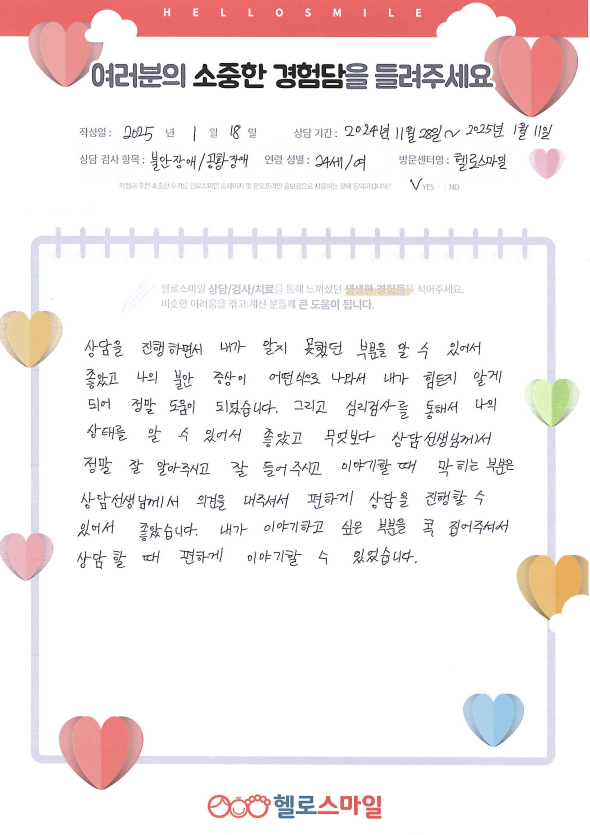 HELLOSMILE
여러분의 소중한 경험담을 들려주세요
작성일 : 2025 년 1 월 18 일 상담 기간 : 2024년 11월 28일 ~ 2025년 1월 11일
상담 검사 항목 : 불안장애/공황장애 연령 성별 : 24세/여 방문센터명 : 헬로스마일
작성해 주신 소중한 후기를 헬로스마일 홈페이지 및 온오프라인 홍보용으로 사용하는 것에 동의하십니까? ✓ YES NO
헬로스마일 상담/검사/치료를 통해 느끼셨던 생생한 경험들을 적어주세요.
비슷한 어려움을 겪고 계신 분들께 큰 도움이 됩니다.
상담을 진행하면서 내가 알지 못했던 부분을 알 수 있어서
좋았고 나의 불안 증상이 어떤식으로 나와서 내가 힘든지 알게
되어 정말 도움이 되었습니다. 그리고 심리검사를 통해서 나의
상태를 알 수 있어서 좋았고 무엇보다 상담선생님께서
정말 잘 알아주시고 잘 들어주시고 이야기할 때 막히는 부분은
상담선생님께서 의견을 내주셔서 편하게 상담을 진행할 수
있어서 좋았습니다. 내가 이야기하고 싶은 부분을 콕 집어주셔서
상담 할 때 편하게 이야기할 수 있었습니다.
헬로스마일